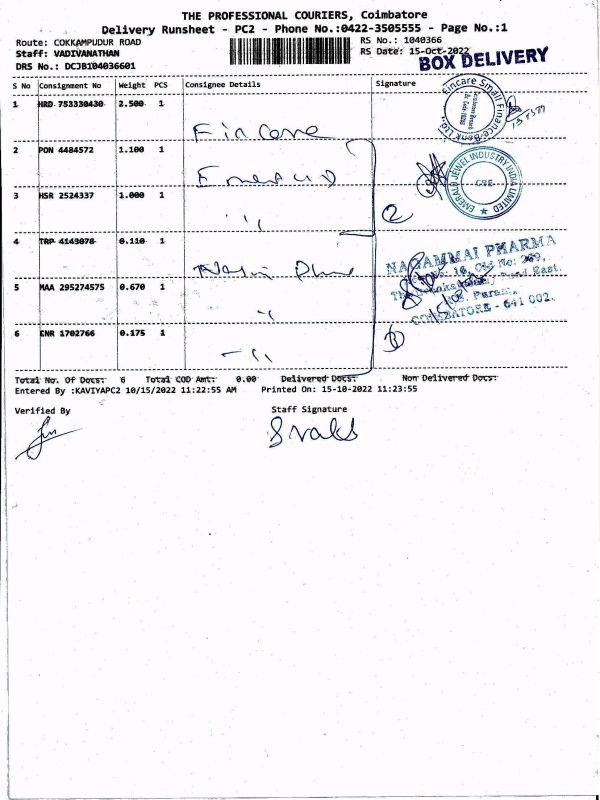 THE PROFESSIONAL COURIERS, Coimbatore
Delivery Runsheet - PC2 - Phone No.:0422-3505555 - Page No.:1
Route: COKKAMPUDUR ROAD
RS No.: 1040366
Staff: VADIVANATHAN
RS Date: 15-Oct-2022
DRS No.: DCJB104036601
BOX DELIVERY
S No Consignment No Weight PCS Consignee Details Signature
1 HRD 753330430 2.500 1 Fincare
Fincare Small Finance Bank Ltd.
2 PON 4484572 1.100 1 Emerald
EMERALD JEWEL INDUSTRY INDIA LIMITED
CBE
3 HSR 2524337 1.000 1 "
2
4 TRP 4143078 0.110 1
NAGAMMAI PHARMA
Old No: 269,
Road East,
5 MAA 295274575 0.670 1 "
COIMBATORE - 641 002.
6 CNR 1702766 0.175 1 - "
3
Total No. Of Docs: 6 Total COD Amt: 0.00 Delivered Docs: Non Delivered Docs:
Entered By :KAVIYAPC2 10/15/2022 11:22:55 AM Printed On: 15-10-2022 11:23:55
Verified By Staff Signature